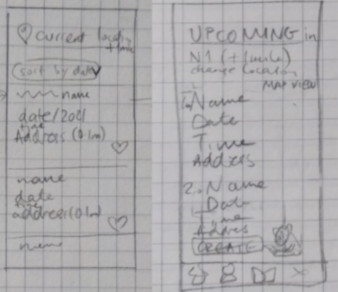 Current location
+1mile
sort by date
name
date/20
Address (0.1m)
name
date
address (0.1m)
name
UPCOMING in
N1 (+1mile)
change location
MAP VIEW
1. Name
Date
Time
Address
2. Name
Date
Time
Addres
CREATE